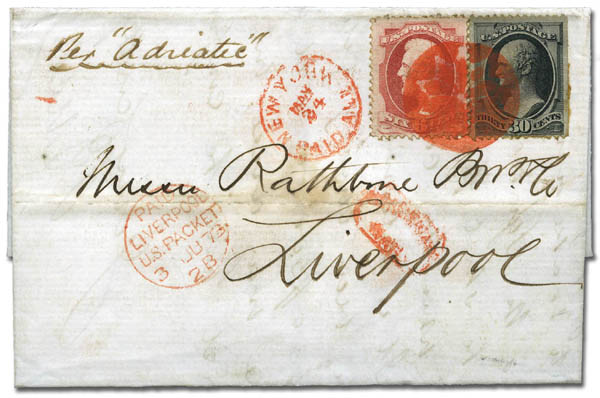 Per "Adriatic"
NEW YORK
MAY
24
PAID A
U.S. POSTAGE
U.S. POSTAGE
THIRTY 30 CENTS
Messrs Rathbone Bros. & Co
Liverpool
PAID
LIVERPOOL
U.S. PACKET
3 JU 73
2B